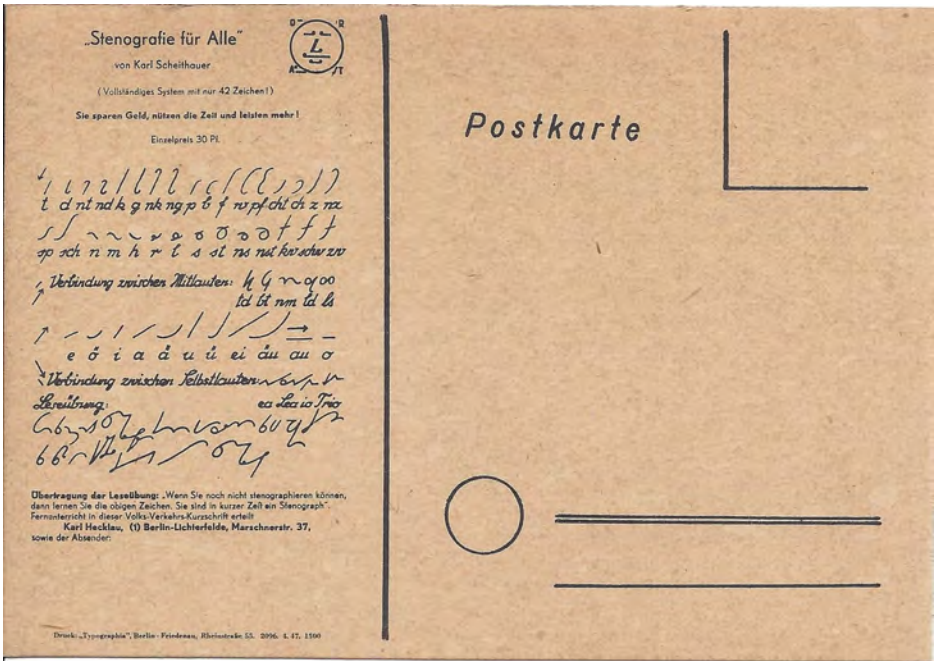 „Stenografie für Alle"
von Karl Scheithauer
(Vollständiges System mit nur 42 Zeichen!)
Sie sparen Geld, nützen die Zeit und leisten mehr!
Einzelpreis 30 Pf.
t d nt nd k g nk ng p b f w pf cht ch z nz
sp sch n m h r l s st ns nst kw schw zw
Verbindung zwischen Mitlauten:
td bt nm td ls
e ö i a ä u ü ei äu au o
Verbindung zwischen Selbstlauten
Leseübung: ea Lea io Trio
Übertragung der Leseübung: „Wenn Sie noch nicht stenographieren können,
dann lernen Sie die obigen Zeichen. Sie sind in kurzer Zeit ein Stenograph".
Fernunterricht in dieser Volks-Verkehrs-Kurzschrift erteilt
Karl Hecklau, (1) Berlin-Lichterfelde, Marschnerstr. 37,
sowie der Absender:
Druck: „Typographia", Berlin-Friedenau, Rheinstraße 55. 2096. 4. 47. 1500
Postkarte